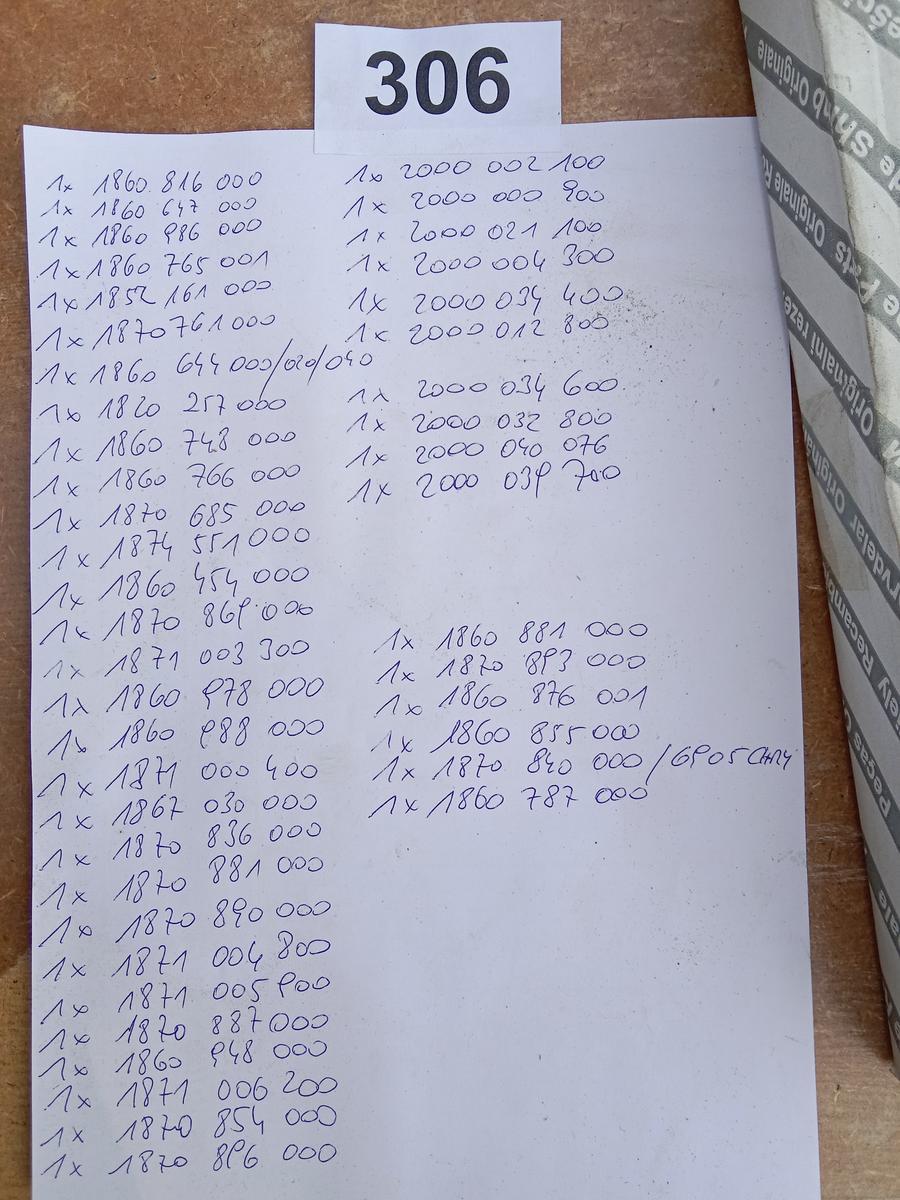 306
1x 1860 816 000
1x 1860 647 000
1x 1860 986 000
1x 1860 765 001
1x 1852 161 000
1x 1870 761 000
1x 1860 644 000/020/040
1x 1820 257 000
1x 1860 748 000
1x 1860 766 000
1x 1870 685 000
1x 1874 551 000
1x 1860 454 000
1x 1870 869 000
1x 1871 003 300
1x 1860 978 000
1x 1860 988 000
1x 1871 000 400
1x 1867 030 000
1x 1870 836 000
1x 1870 881 000
1x 1870 890 000
1x 1871 004 800
1x 1871 005 900
1x 1870 887 000
1x 1860 948 000
1x 1871 006 200
1x 1870 854 000
1x 1870 896 000
1x 2000 002 100
1x 2000 000 900
1x 2000 021 100
1x 2000 004 300
1x 2000 034 400
1x 2000 012 800
1x 2000 034 600
1x 2000 032 800
1x 2000 040 076
1x 2000 039 700
1x 1860 881 000
1x 1870 893 000
1x 1860 876 001
1x 1860 855 000
1x 1870 840 000 /6905
1x 1860 787 000
Originale
Originale
Parts
Originalni